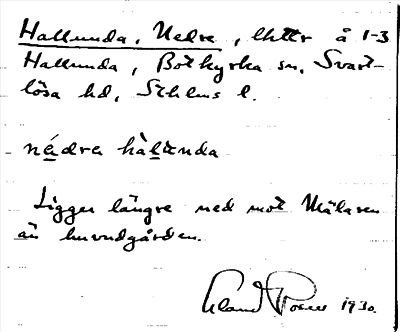 Hallunda, Nedre, lht:r å 1-3
Hallunda, Botkyrka sn, Svart-
lösa hd, Sthlms l.
nédra hàlunda
Ligger längre ned mot Mälaren
än huvudgården.
Erland Rosell 1930.